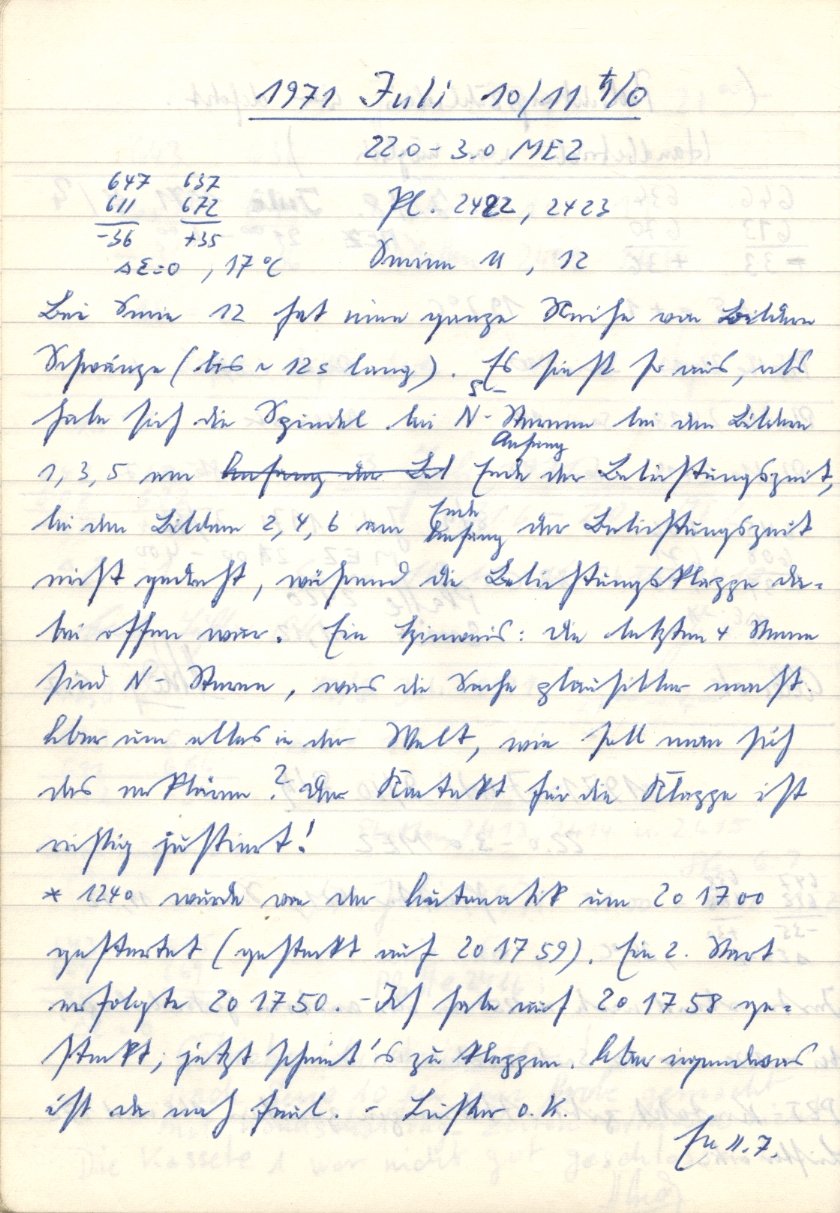 1971 Juli 10/11 ♄/☉
22.0 - 3.0 MEZ
647 637
611 672
-36 +35
Pl. 2422, 2423
Δε=0 , 17 °C
Serien 11 , 12
Bei Serie 12 hat eine ganze Reihe von Bildern
Schwänze (bis ~ 12s lang). Es sieht so aus, als
habe sich die Spindel bei N-Sternen bei den Bildern
1, 3, 5 am Anfang der Bel Ende der Belichtungszeit,
Anfang
bei den Bildern 2, 4, 6 am Anfang der Belichtungszeit
Ende
nicht gedreht, während die Belichtungsklappe da-
bei offen war. Ein Hinweis: die letzten 4 Sterne
sind N-Sterne, was die Sache plausibler macht.
Aber um alles in der Welt, wie soll man sich
das erklären? Der Kontakt für die Klappe ist
richtig justiert!
* 1240 wurde von der Automatik um 20 17 00
gestartet (gesteckt auf 20 17 59). Ein 2. Start
erfolgte 20 17 50. - Ich habe auf 20 17 58 ge-
steckt; jetzt scheint's zu klappen. Aber irgendwas
ist da noch faul. - Lüfter o.K.
11.7.